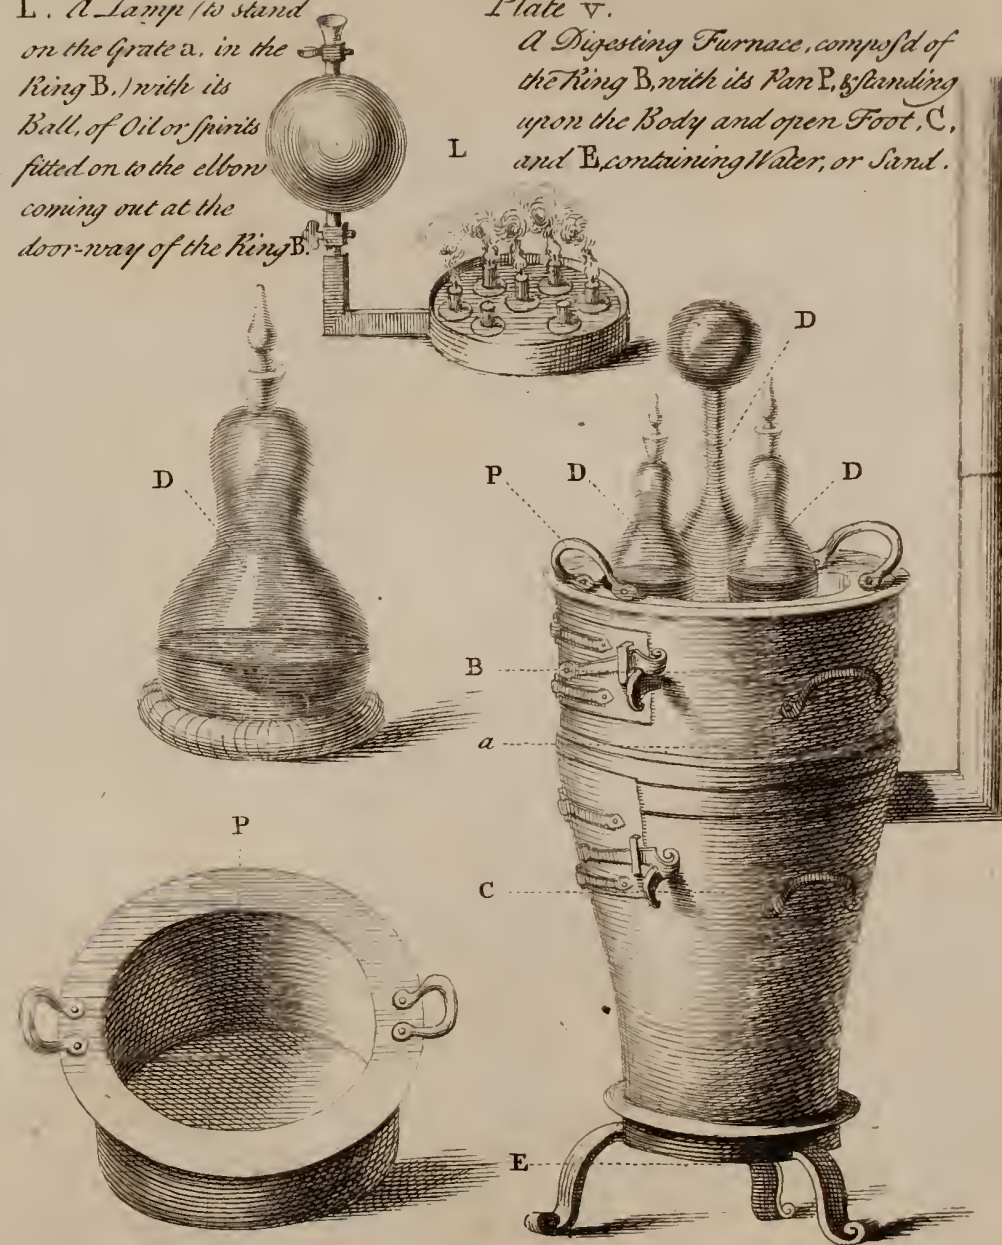 L. A Lamp (to stand
on the Grate a. in the
Ring B.) with its
Ball, of Oil or ſpirits
fitted on to the elbow
coming out at the
door-way of the Ring B.
Plate V.
A Digesting Furnace, compoſd of
the Ring B, with its Pan P, & ſtanding
upon the Body and open Foot, C,
and E, containing Water, or Sand.
L
D
D
P
D
D
B
a
P
C
E